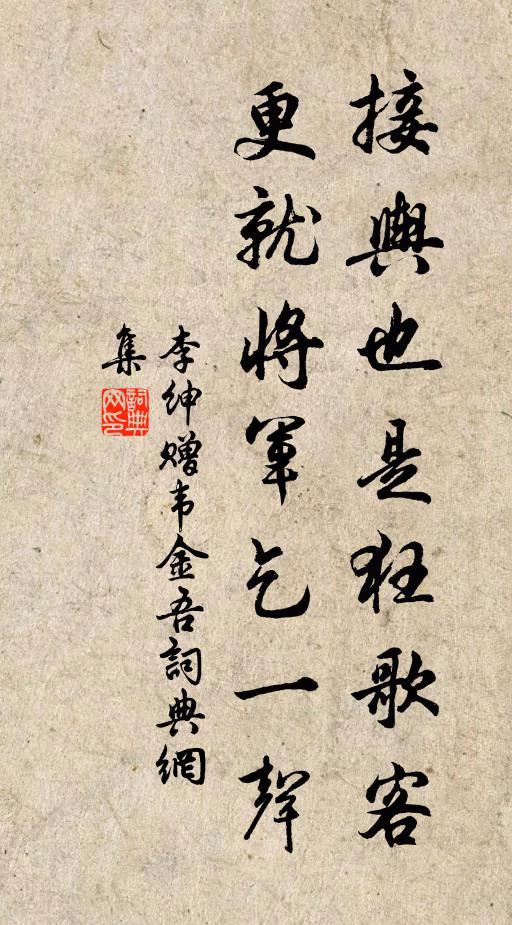 接輿也是狂歌客
更就將軍乞一聲
李紳赠韦金吾詞典網
集
詞典網印